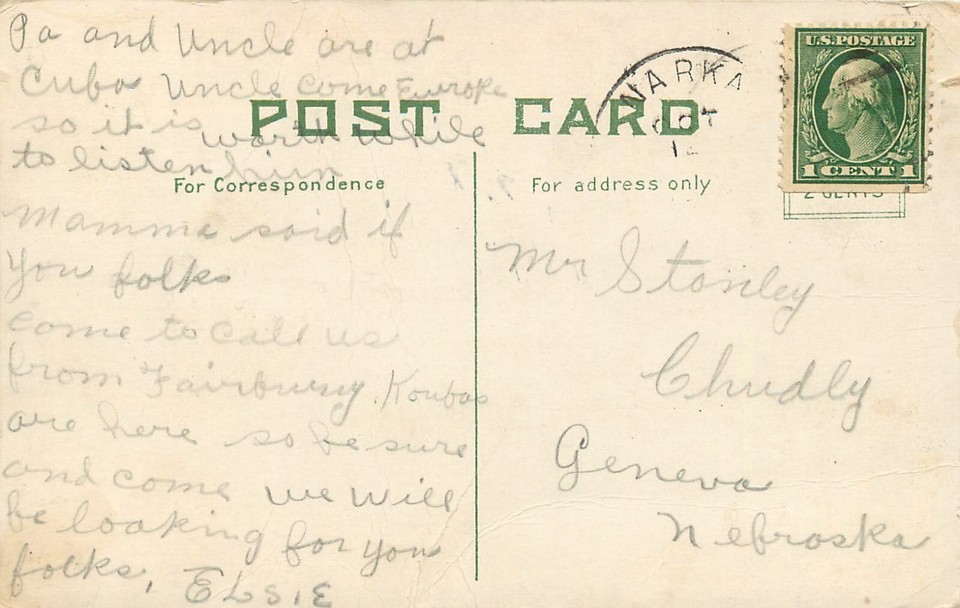 Pa and Uncle are at
Cuba Uncle come Europe
so it is worth while
to listen him
Mamma said if
you folks
come to call us
from Fairbury. Koubas
are here so be sure
and come we will
be looking for you
folks, ELSIE
POST CARD
For Correspondence
For address only
WARKA
OCT
U.S. POSTAGE
1 CENT 1
2 CENTS
Mr Stanley
Chudly
Geneva
Nebraska